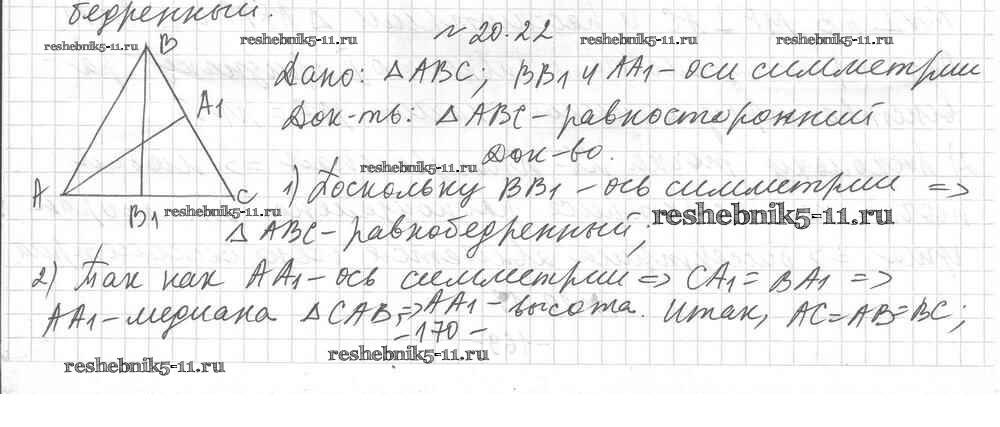 бедренный.
№ 20.22
reshebnik5-11.ru reshebnik5-11.ru reshebnik5-11.ru reshebnik5-11.ru
B
Дано: △ABC; BB1 и AA1 – оси симметрии
A1
Док-ть: △ABC – равносторонний
Док-во.
reshebnik5-11.ru
A B1 C
1) Поскольку BB1 – ось симметрии =>
reshebnik5-11.ru reshebnik5-11.ru
△ABC – равнобедренный;
2) Так как AA1 – ось симметрии => CA1 = BA1 =>
AA1 – медиана △CAB, => AA1 – высота. Итак, AC = AB = BC;
– 170 –
reshebnik5-11.ru reshebnik5-11.ru